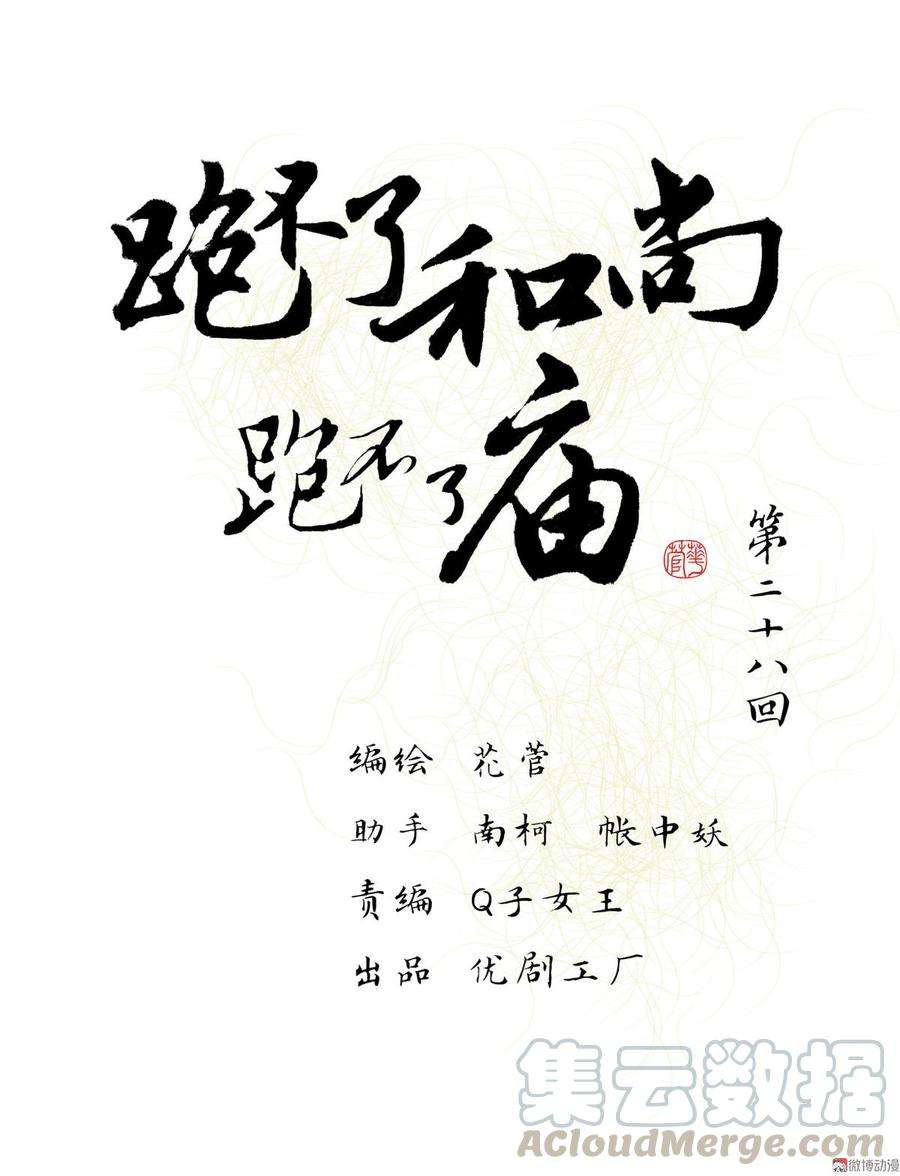 跑不了和尚
跑不了庙
華菅
第二十八回
编绘 花菅
助手 南柯 帐中妖
责编 Q子女王
出品 优剧工厂
集云数据
ACloudMerge.com
微博动漫